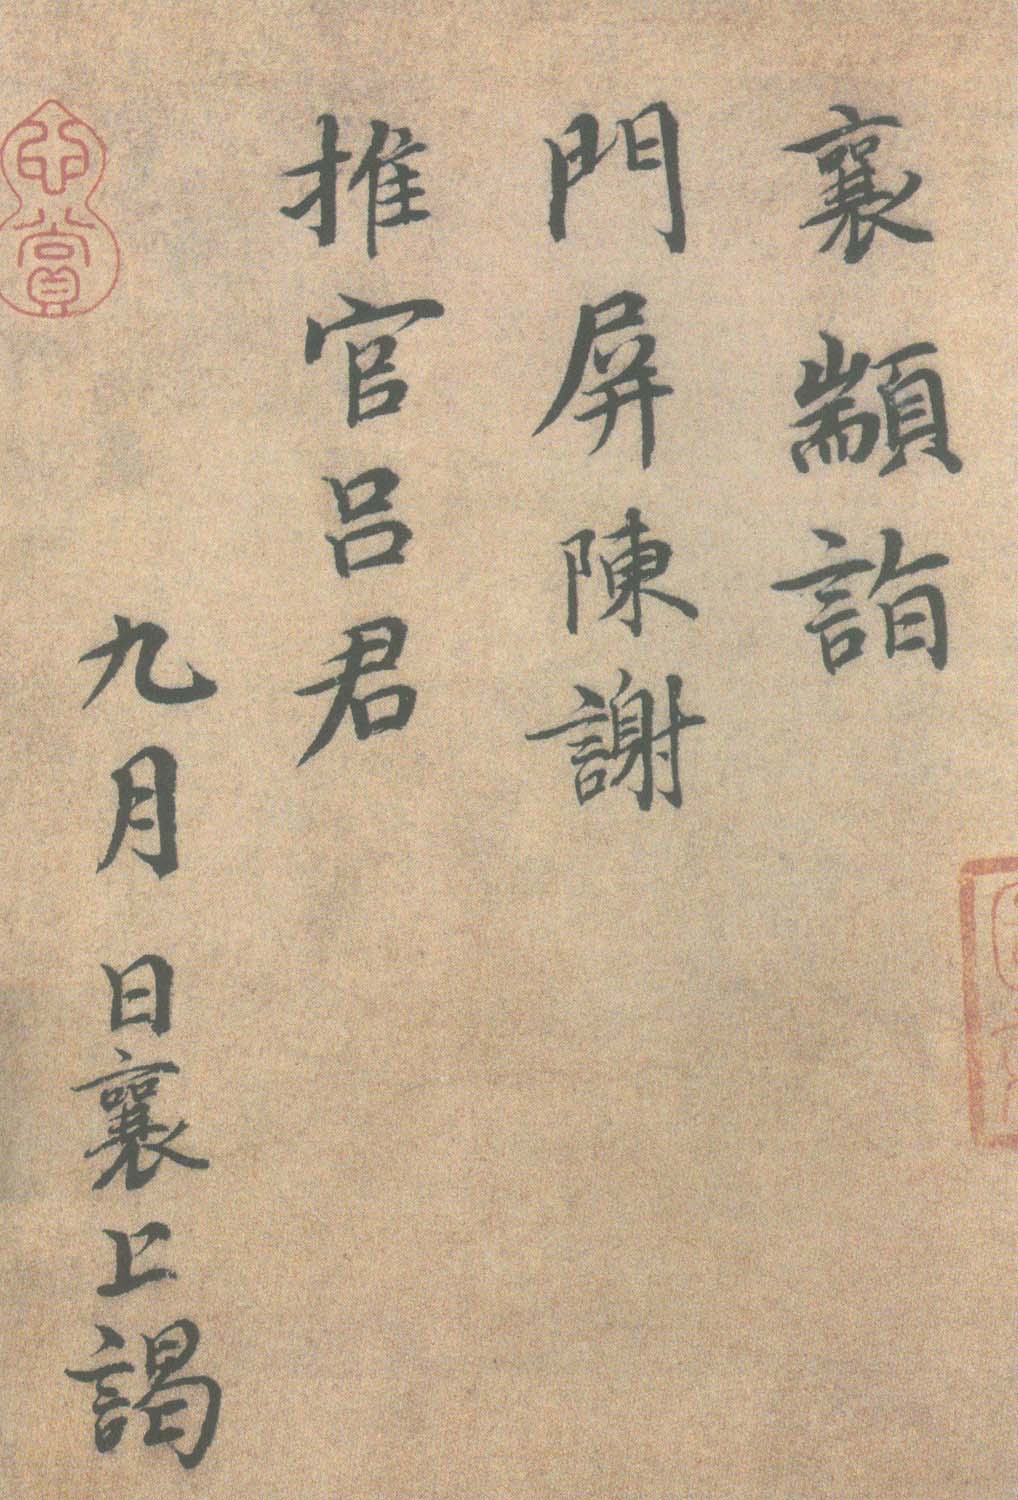 襄顓詣
門屏陳謝
推官呂君
九月 日襄上謁